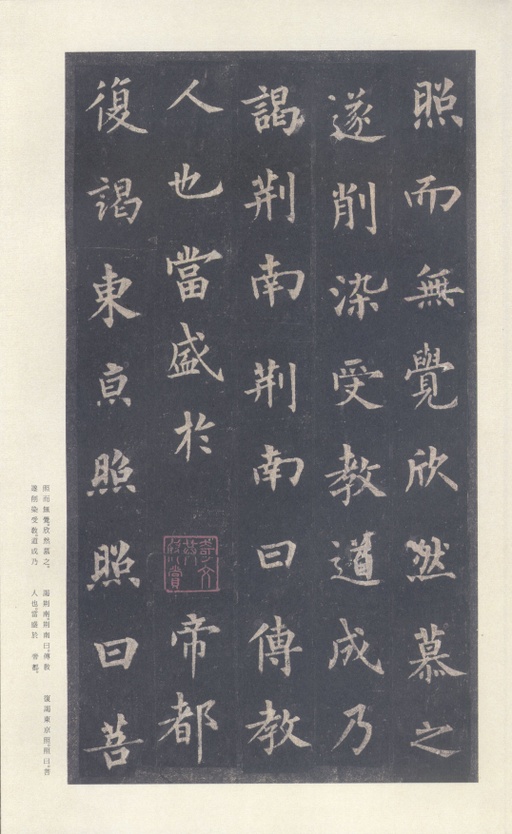 照而無覺欣然慕之
遂削染受教道成乃
謁荆南荆南曰傳教
人也當盛於 帝都
復謁東京照照曰菩
照而無覺。欣然慕之。 謁荆南。荆南曰。傳教 復謁東京照。照曰。菩
遂削染受教。道成乃 人也。當盛於 帝都。